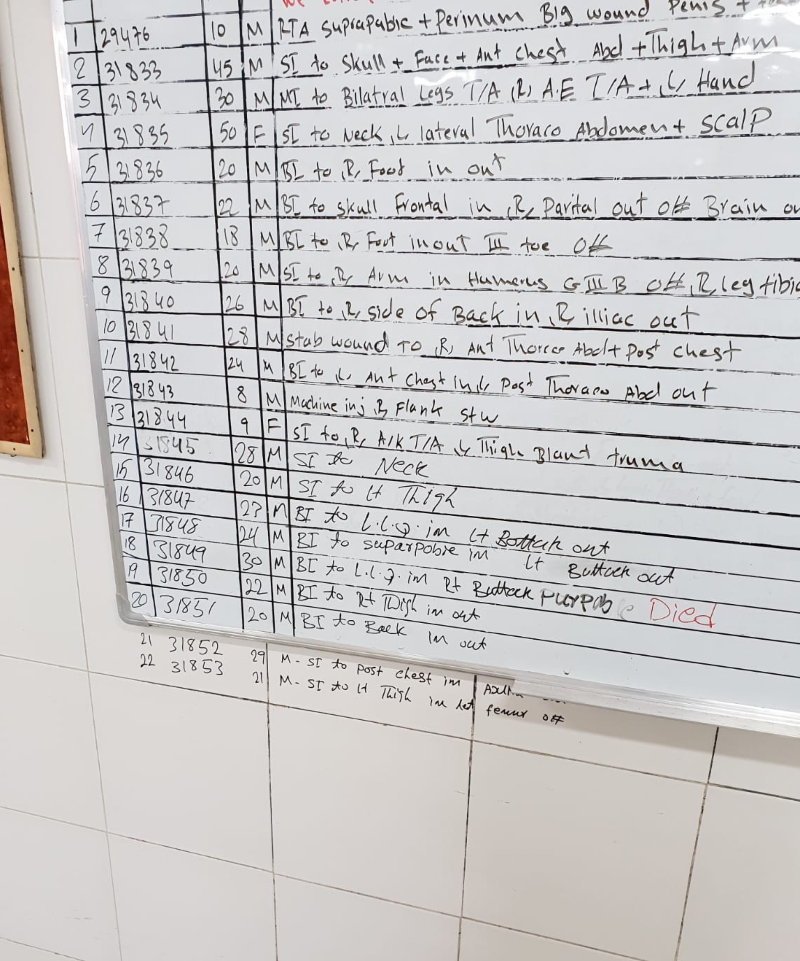 1 29476 10 M RTA suprapubic + Perinum Big wound Penis +
2 31833 45 M SI to Skull + Face + Ant chest Abd + Thigh + Arm
3 31834 30 M MI to Bilatral Legs T/A (R) A.E T/A + (L) Hand
4 31835 50 F SI to Neck (L) lateral Thoraco Abdomen + SCALP
5 31836 20 M BI to (R) Foot in out
6 31837 22 M BI to skull Frontal in (R) Parital out off Brain
7 31838 18 M BI to (R) Foot in out III toe off
8 31839 20 M SI to (R) Arm in Humerus G III B off (R) leg tibia
9 31840 26 M BI to (R) side of Back in (R) illiac out
10 31841 28 M stab wound TO (R) Ant Thoraco Abd + Post chest
11 31842 24 M BI to (L) Ant Chest in (L) Post Thoraco Abd out
12 31843 8 M Machine inj (R) Flank STW
13 31844 9 F SI to (R) A/K T/A (L) Thigh Blant truma
14 31845 28 M SI to Neck
15 31846 20 M SI to Lt Thigh
16 31847 23 M BI to L.L.Q. im Lt Buttack out
17 31848 24 M BI to suparpobie im Lt Buttack out
18 31849 30 M BI to L.L.Q. im Rt Buttock Died
19 31850 22 M BI to Rt Thigh im out
20 31851 20 M BI to Back im out
21 31852 29 M - SI to post chest im
22 31853 21 M - SI to Lt Thigh im femur off